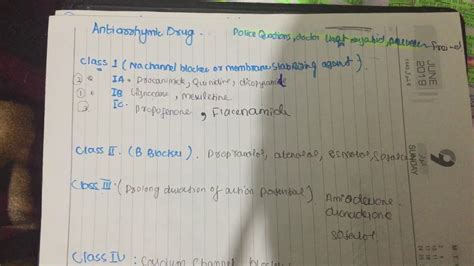 Antiarrhymic Drug.
Police Questions, doctor
Class I (Na channel blocker or membrane stabilizing agent).
IA - Procainimide, Quinidine, disopyramide
IB Lignocaine, mexiletine
IC. Propafenone, Flecenamide
Class II. (B Blocker). Propranolol, atenolol, esmolol, Sotalol
Class III. (Prolong duration of action potential) Amiodarone
dronadarone
sotalol
Class IV : Calcium Channel
JUNE
2019
9
SUNDAY